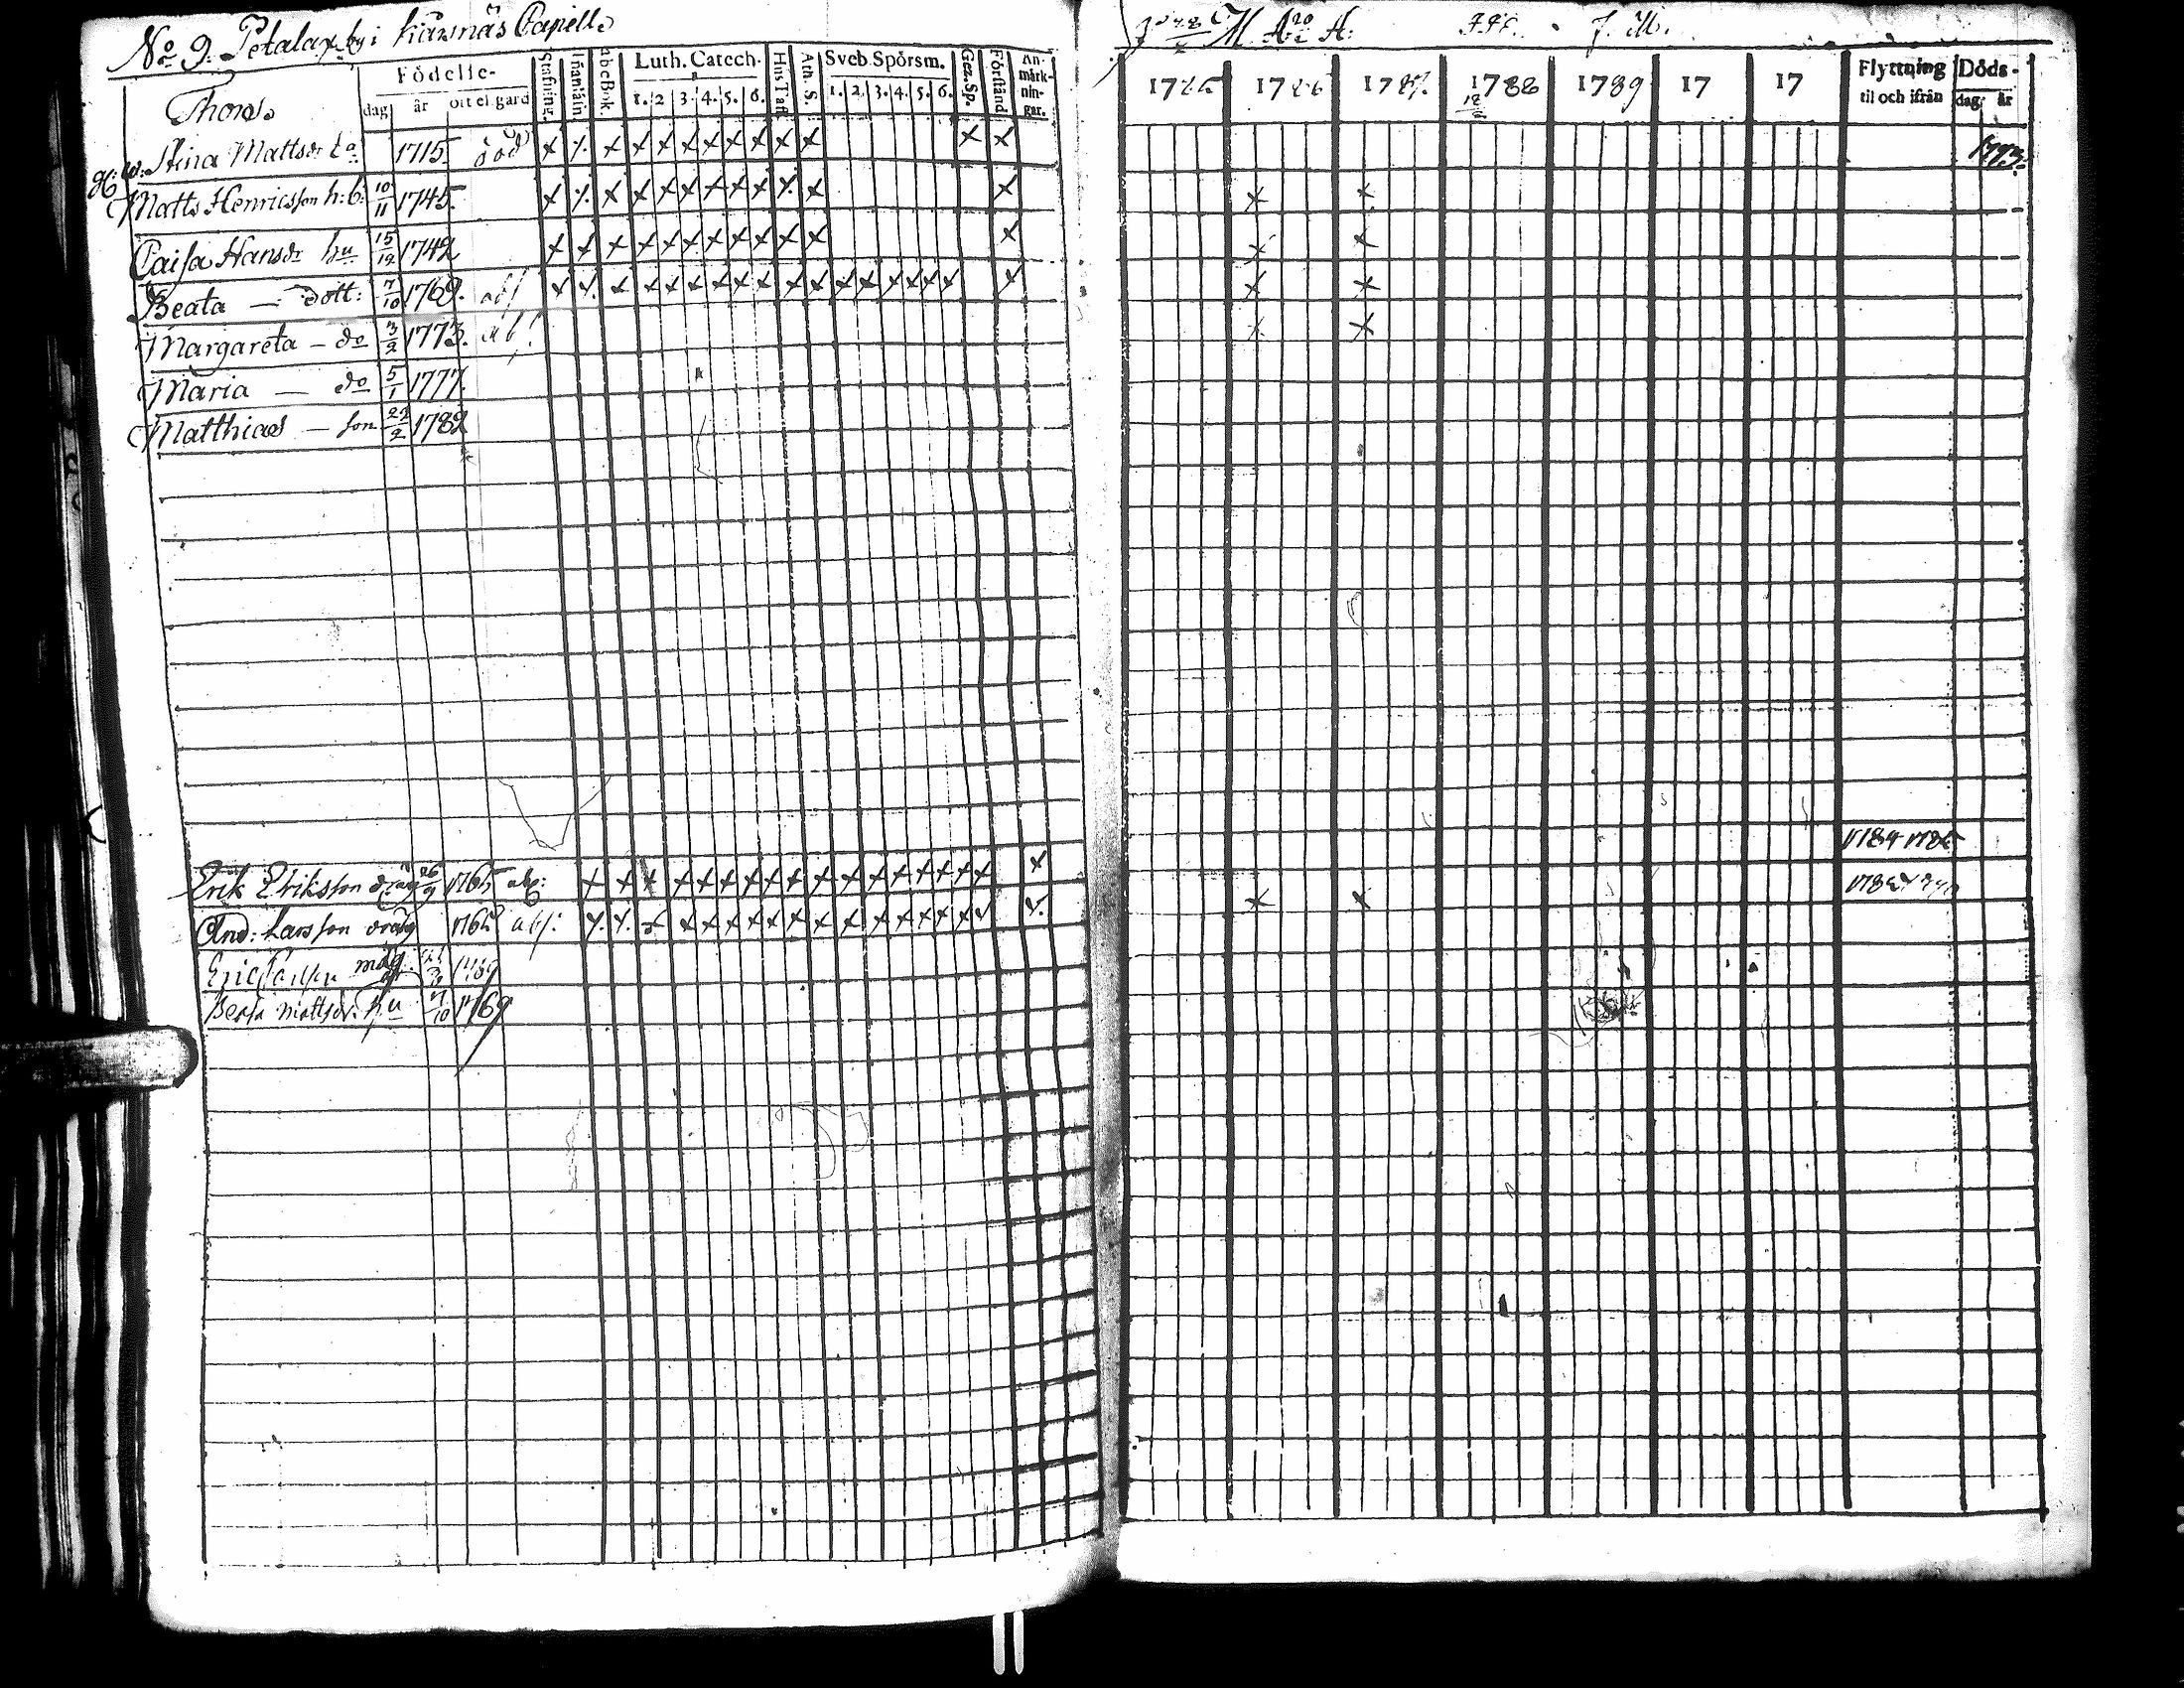 No 9. Petalax by i Kårsnäs Capell.
Thors.
Födelse-
dag år ort el. gård
Stafning. Innanläsn. AbcBok. Luth. Catech. 1. 2 3. 4. 5. 6. Hus Tafl. Ath. S. Sveb. Spörsm. 1. 2. 3. 4. 5. 6. Gez. Sp. Förstånd An-märk-nin-gar.
Stina Mattsdr 1715 död x x x x x x x x x x x x x
Matts Henricsson h: b: 10/11 1745. x x x x x x x x x x x x
Caisa Hansdr hu 15/12 1742 x x x x x x x x x x x x
Beata — dott: 7/10 1769. abs x x x x x x x x x x x x x x x x x x
Margareta — do 3/2 1773. abs:
Maria — do 5/1 1777.
Matthias — son 22/2 1782
Erik Eriksson dräng 26/9 1765 x x x x x x x x x x x x x x x x x x
And: Larsson dräng 1762 abs: x x x x x x x x x x x x x x x x x x
Eric måg
Beata Mattsdr. hu 7/10 1769
M. A: H: J. M.
1785 1786 1787. 1788 1789 17 17 Flyttning til och ifrån Döds- dag: år
1793.
x x
x x
x x
x x
1784 1786
x x